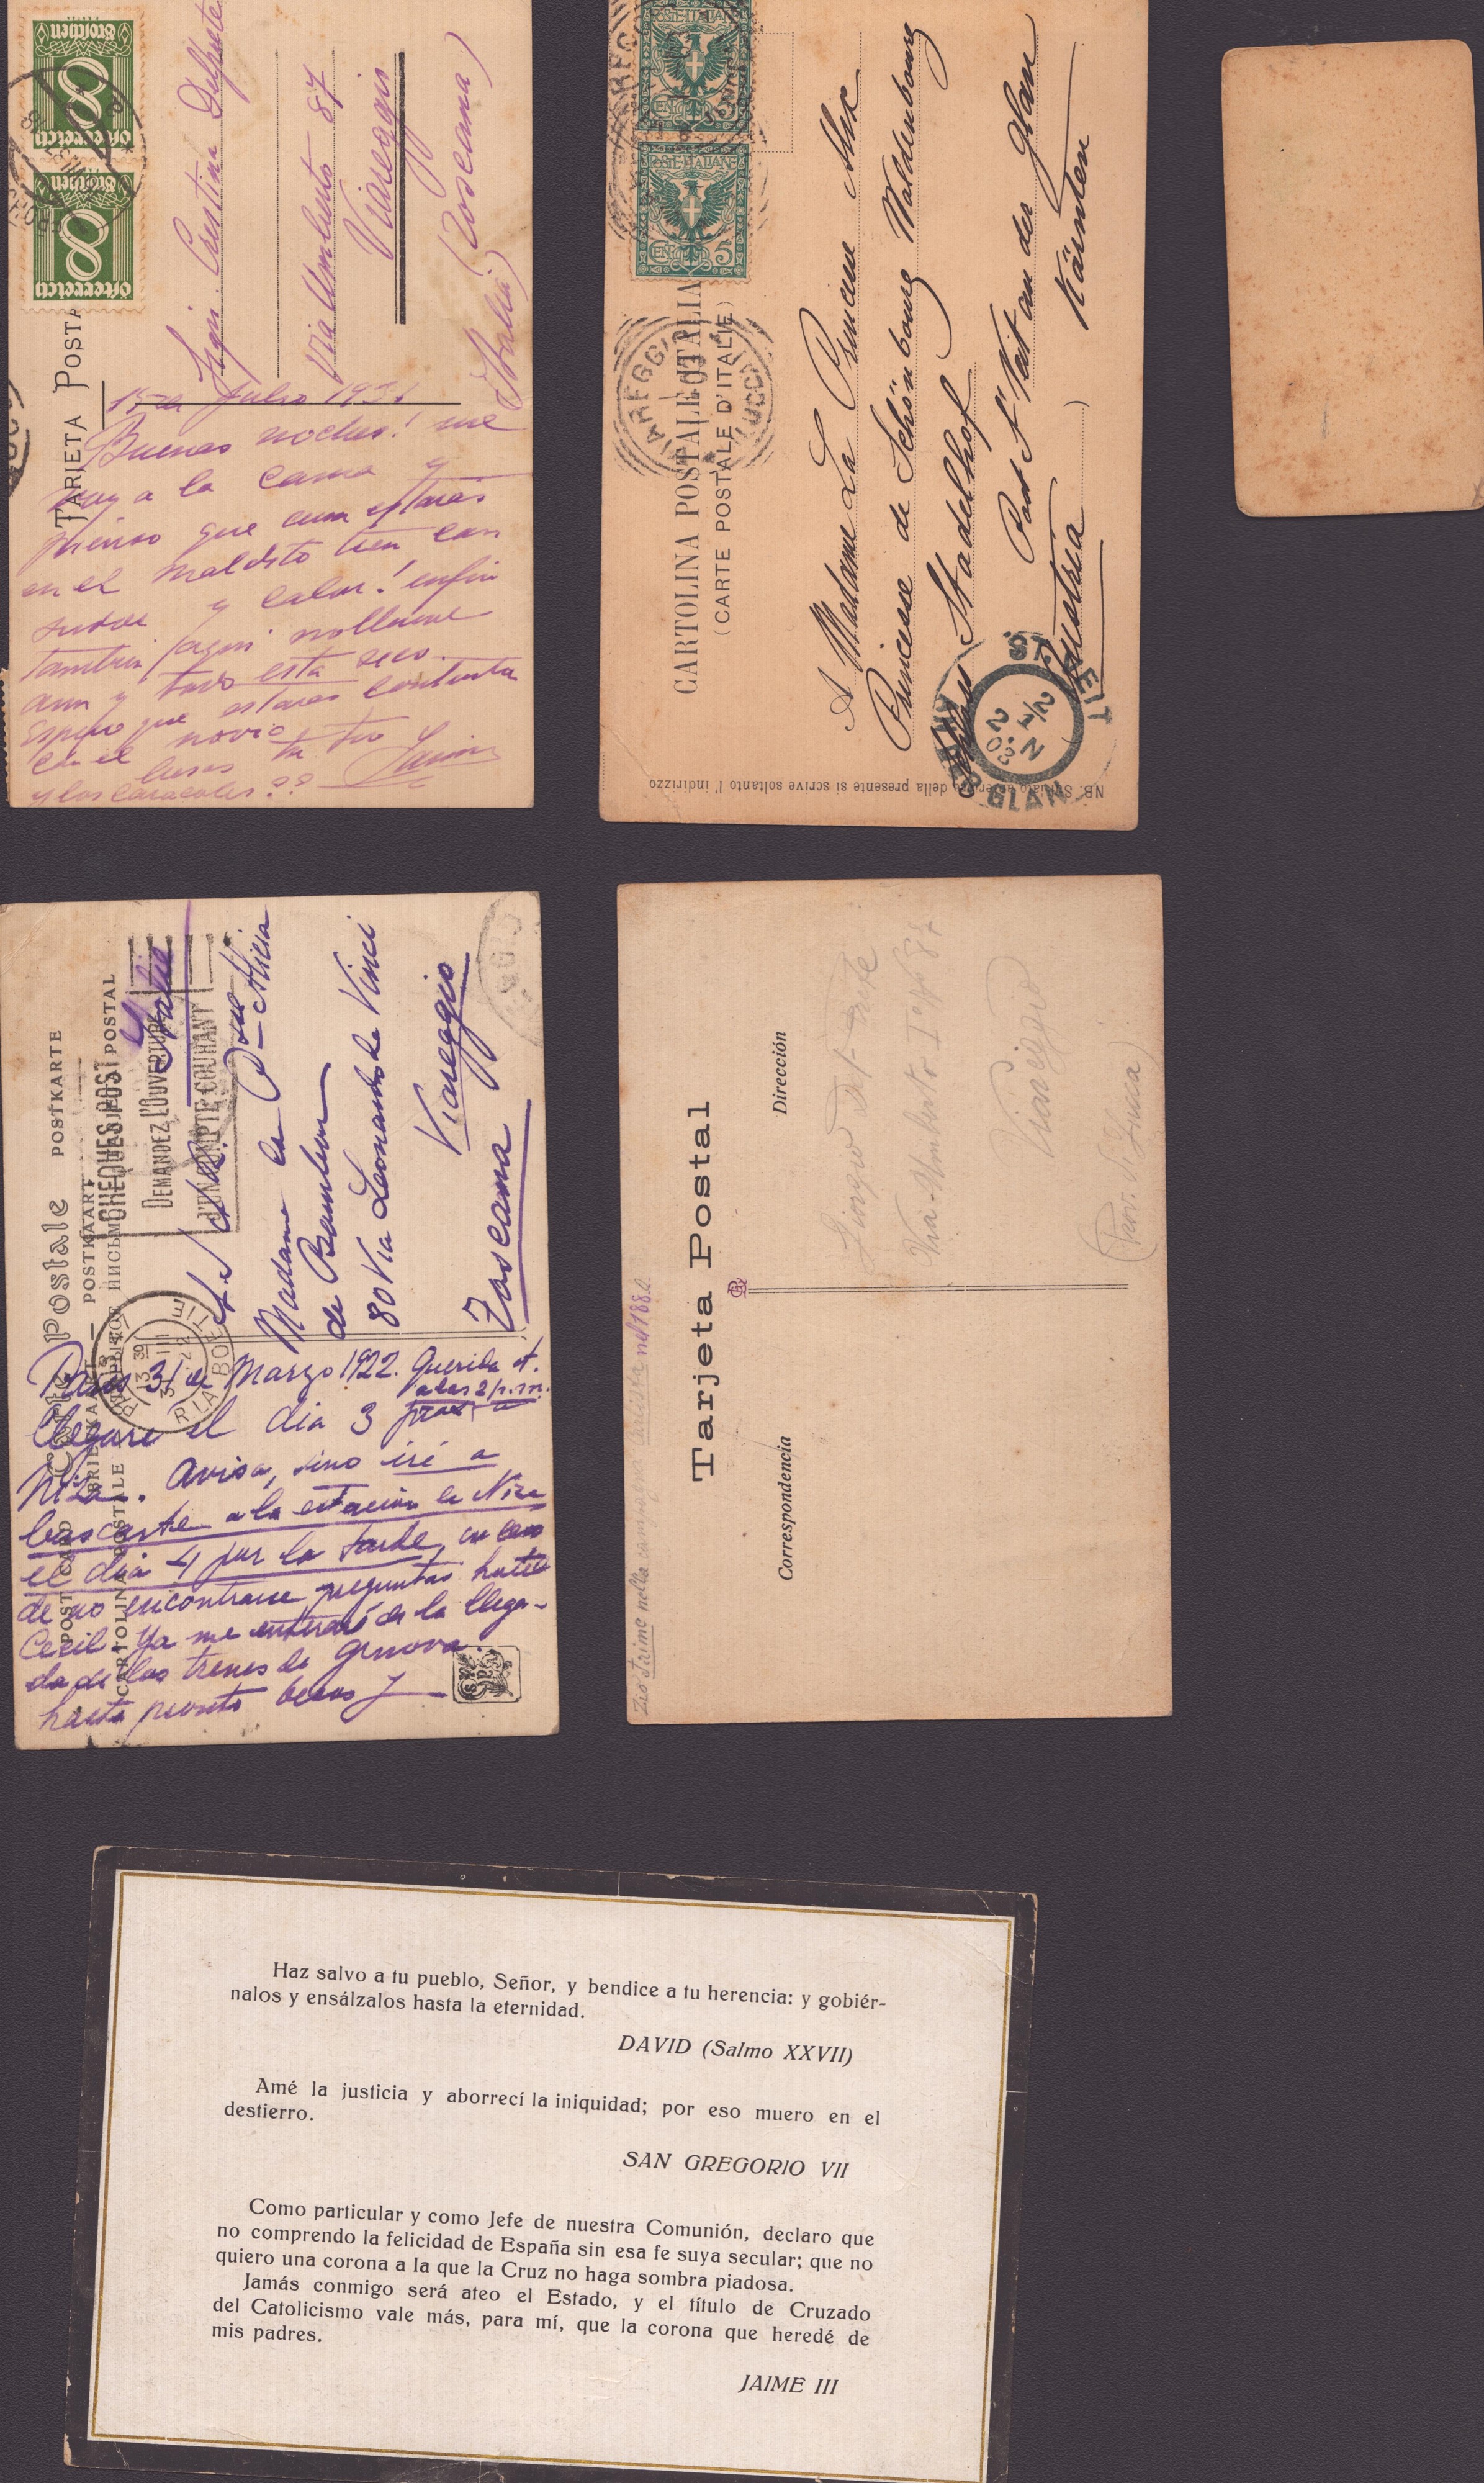 TARJETA POSTA
8
Groschen
Österreich
8
Groschen
Österreich
Sign. Cristina
Via Umberto 87
Viareggio
(Toscana)
(Italia)
15 de Julio 1931
Buenas noches! me
voy a la cama y
pienso que aun estaras
en el maldito tren con
sudor y calor! enfin
tambien aqui no llueve
aun y todo esta seco.
Espero que estaras contenta
con el novio
besos tu tio Jaime
y los caracoles??
CARTOLINA POSTALE ITALIANA
(CARTE POSTALE D'ITALIE)
POSTE·ITALIANE
CENT. 5
POSTE·ITALIANE
CENT. 5
VIAREGGIO
(LUCCA)
A Madame La Princesse Alix
Princesse de Schönbourg Waldenbourg
Stadelhof
Post St Veit an der Glan
Kärnten
Austria
ST. VEIT
GLAN
NB. Sul lato anteriore della presente si scrive soltanto l'indirizzo
Carte Postale POSTKARTE
POST CARD
BRIEFKAART — POSTKAART
CARTOLINA POSTALE
CHEQUES POST
DEMANDEZ L'OUVERTURE
D'UN COMPTE COURANT
PARIS
RUE LA BOETIE
Italie
A S. A. R.
Madame la Pcesse Alicia
de Bourbon
80 Via Leonardo da Vinci
Viareggio
Toscana
Paris 31 de Marzo 1922. Querida A.
Llegaré el dia 3 a las 2 p.m.
Niza. Avisa, sino iré a
buscarte a la estación de Niza
el dia 4 por la tarde, en caso
de no encontrarme preguntas hotel
Cecil. Ya me enteraré de la llega-
da de los trenes de Genova.
hasta pronto besos J
Zio Jaime nella campagna Carlista nel 188
Tarjeta Postal
Correspondencia
Dirección
Via Umberto I° N° 87
Viareggio
(Prov. di Lucca)
Haz salvo a tu pueblo, Señor, y bendice a tu herencia: y gobiér-
nalos y ensálzalos hasta la eternidad.
DAVID (Salmo XXVII)
Amé la justicia y aborrecí la iniquidad; por eso muero en el
destierro.
SAN GREGORIO VII
Como particular y como Jefe de nuestra Comunión, declaro que
no comprendo la felicidad de España sin esa fe suya secular; que no
quiero una corona a la que la Cruz no haga sombra piadosa.
Jamás conmigo será ateo el Estado, y el título de Cruzado
del Catolicismo vale más, para mí, que la corona que heredé de
mis padres.
JAIME III